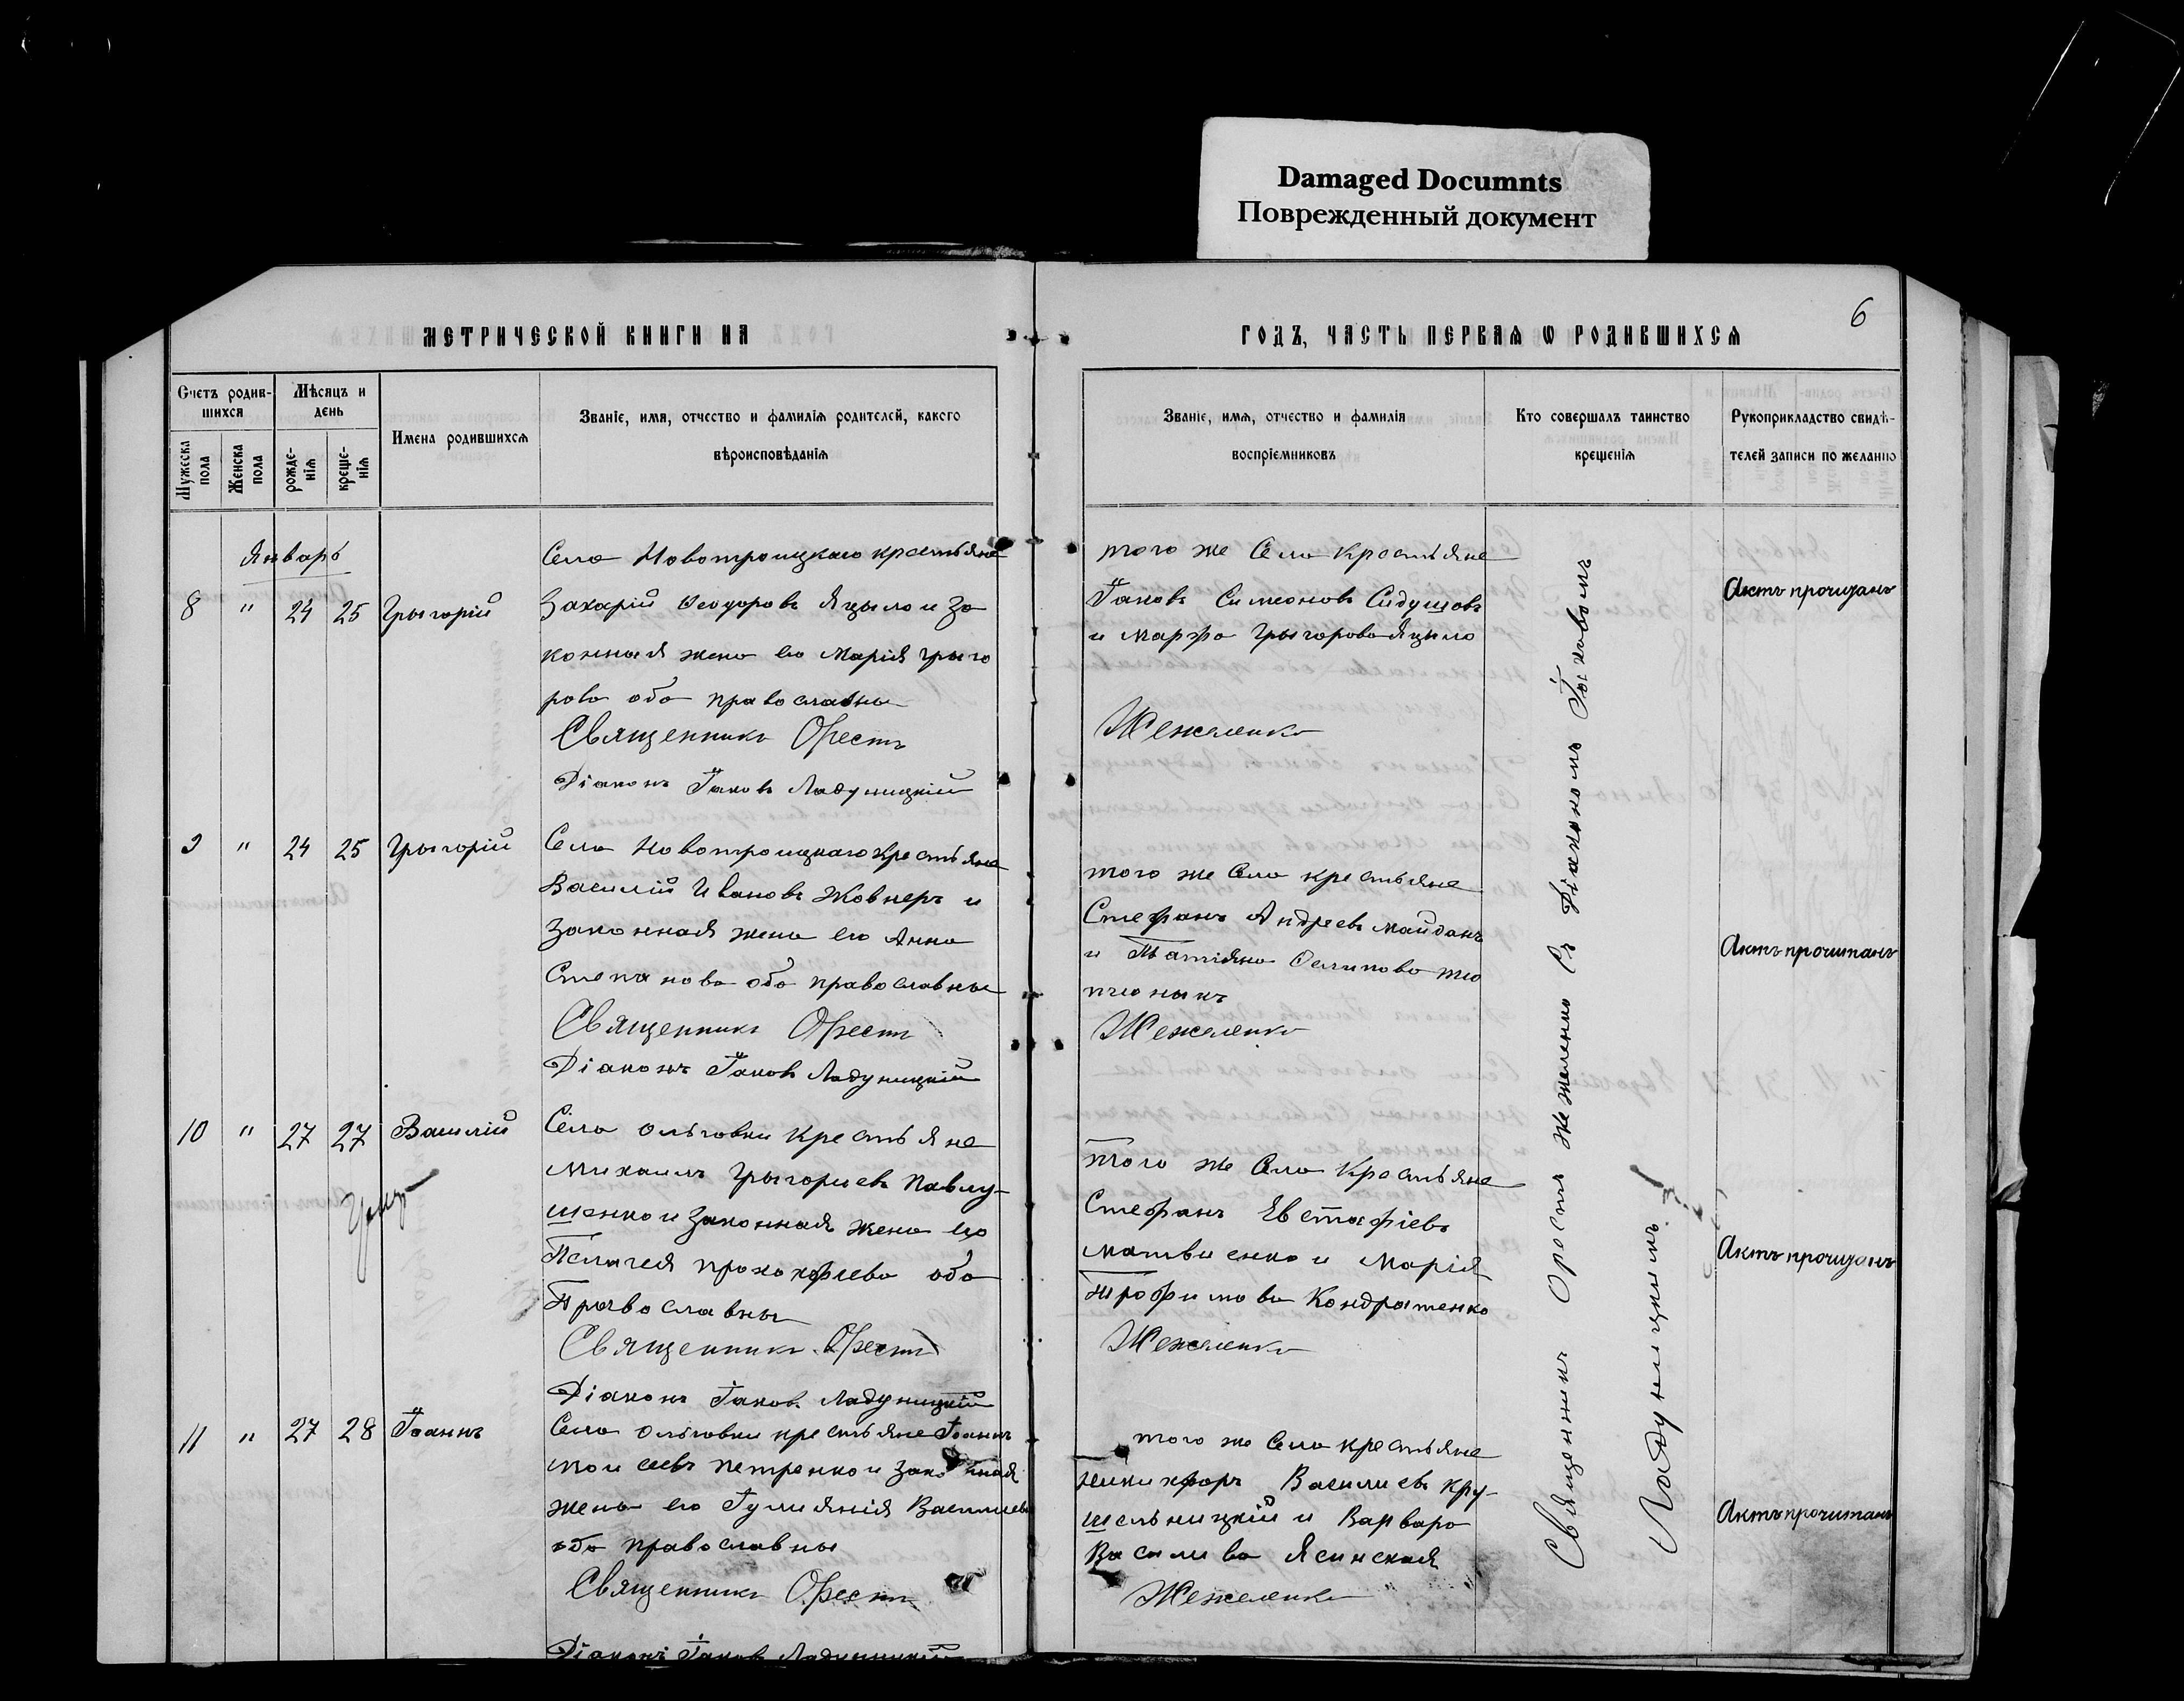 Damaged Documnts
Поврежденный документ
6
МЕТРИЧЕСКОЙ КНИГИ НА
ГОДЪ, ЧАСТЬ ПЕРВАЯ Ѡ РОДИВШИХСЯ
Счетъ родив-
шихся
Мужеска
пола
Женска
пола
Мѣсяцъ и
день
рожде-
нія
креще-
нія
Имена родившихся
Званіе, имя, отчество и фамилія родителей, какого
вѣроисповѣданія
Званіе, имя, отчество и фамилія
воспріемниковъ
Кто совершалъ таинство
крещенія
Рукоприкладство свидѣ-
телей записи по желанію
Январь
8 " 24 25 Грыгорій
Села Новотроицкаго крестьяне
Захарій Ѳеодоровъ Яцыло и за
конная жена его Марія Грыго
рова оба православны
Священникъ Орестъ
Діаконъ Іаковъ Ладуницкій
того же Села Крестьяне
Іаковъ Симеоновъ
и Марфа Грыгорова Яцыло
Жежеленко
Актъ прочиданъ
9 " 24 25 Грыгорій
Села Новотроицкаго крестьяне
Василій Ивановъ Жовнеръ и
Законная жена его Анна
Степанова оба православны
Священникъ Орестъ
Діаконъ Іаковъ Ладуницкій
того же Села крестьяне
Стефанъ Андреевъ Майданъ
и Татіяна Осипова
Жежеленко
Актъ прочитанъ
10 " 27 27 Василій
Села Ольговки Крестьяне
Михаилъ Грыгориевъ Павлу-
шенко и Законная жена его
Пелагея оба
Православны
Священникъ Орестъ
Діаконъ Іаковъ Ладуницкій
того же Села Крестьяне
Стефанъ Евстафіевъ
матвиенко и Марія
трофимова Кондратенко
Жежеленко
Актъ прочиданъ
11 " 27 28 Іоаннъ
Села Ольговки крестьяне Іоаннъ
Моисеевъ Петренко и Законная
жена его Іулиянія Василиева
оба православны
Священникъ Орестъ
Діаконъ Іаковъ Ладуницкій
того же Села крестьяне
никифоръ Василиевъ Кру-
шельницкій и Варвара
Василива Ясинская
Жежеленко
Актъ прочитанъ
Священникъ Орестъ Жежеленко съ Діакономъ Іаковомъ
Ладуницкимъ